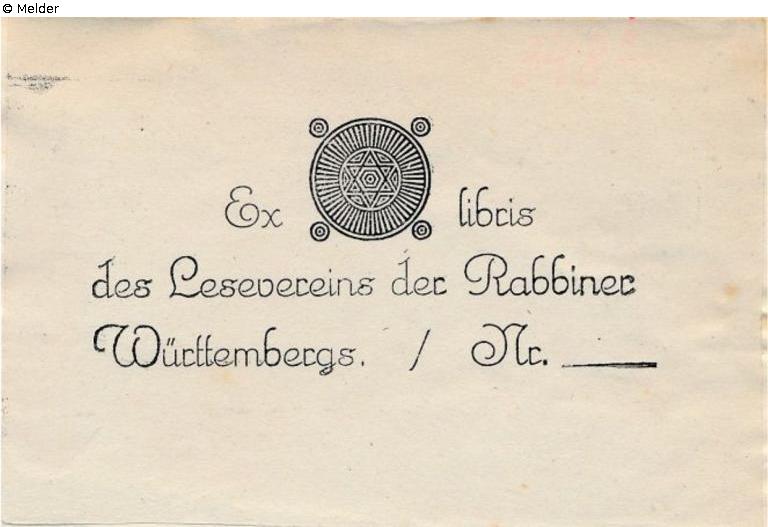 © Melder
Ex libris
des Lesevereins der Rabbiner
Württembergs. / Nr. ____